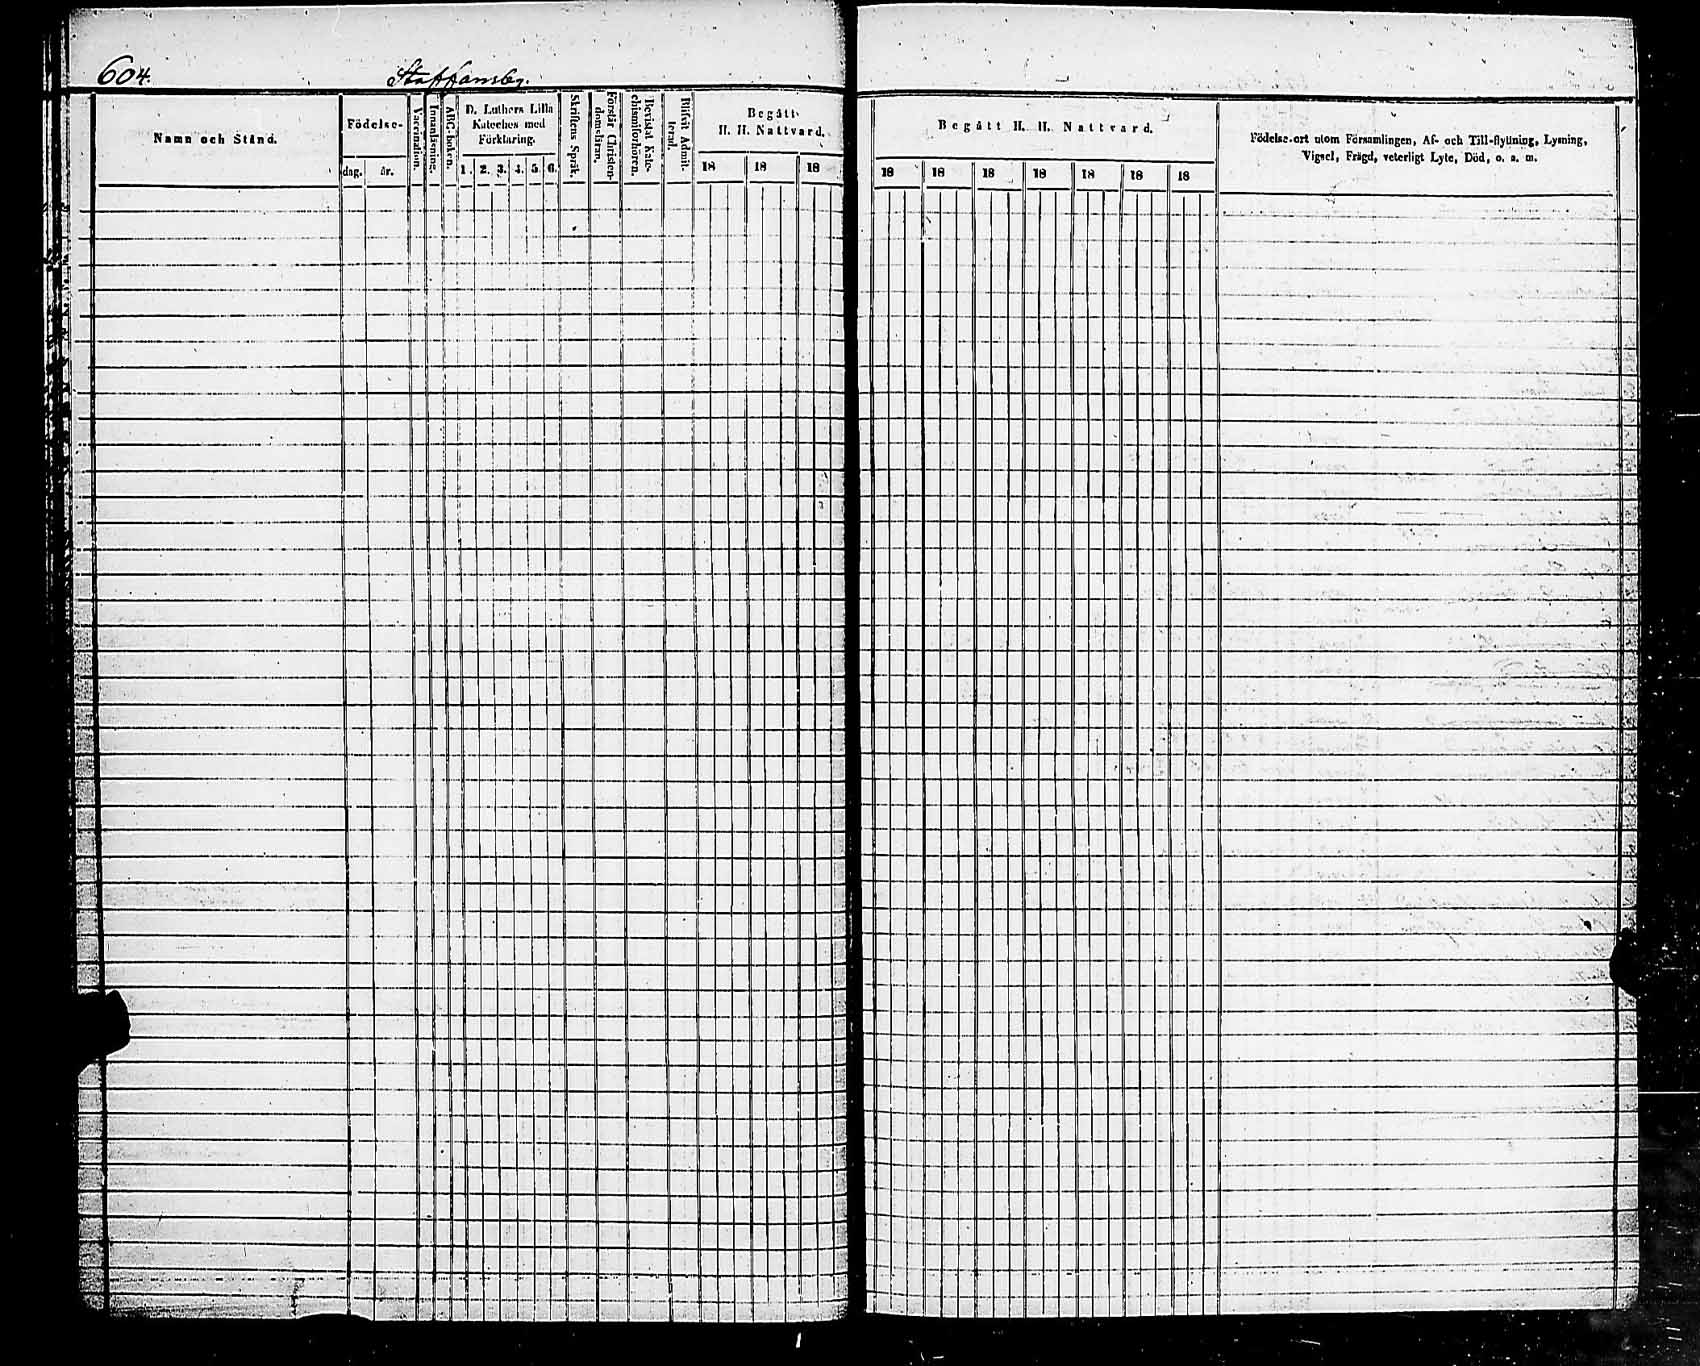 604.
Staffansby.
Namn och Stånd.
Födelse-
dag.
år.
Vaccination.
Innanläsning.
ABC-boken.
D. Luthers Lilla
Kateches med
Förklaring.
1. 2. 3. 4. 5. 6.
Skriftens Språk.
Förstår Christen-
domsläran.
Bevistat Kate-
chismiförhören.
Blifvit Admit-
terad.
Begått
H. H. Nattvard.
18 18 18
Begått H. H. Nattvard.
18 18 18 18 18 18 18
Födelse-ort utom Församlingen, Af- och Till-flyttning, Lysning,
Vigsel, Frägd, veterligt Lyte, Död, o. s. m.